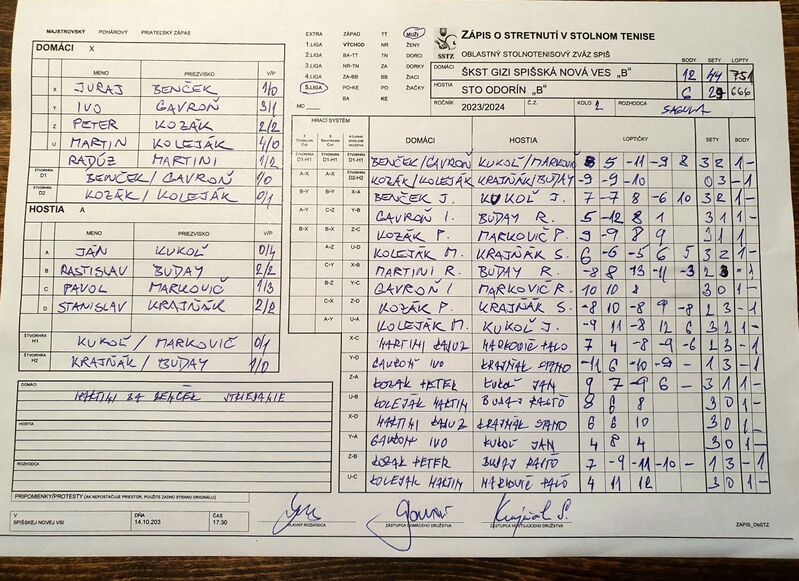 MAJSTROVSKÝ POHÁROVÝ PRIATEĽSKÝ ZÁPAS
DOMÁCI X
MENO PRIEZVISKO V/P
X JURAJ BENČEK 1/0
Y IVO GAVROŇ 3/1
Z PETER KOZÁK 2/2
U MARTIN KOLEJÁK 4/0
RADÚZ MARTINI 1/2
ŠTVORHRA D1 BENČEK/GAVROŇ 1/0
ŠTVORHRA D2 KOZÁK/KOLEJÁK 0/1
HOSTIA A
MENO PRIEZVISKO V/P
A JÁN KUKOĽ 0/4
B RASTISLAV BUDAY 2/2
C PAVOL MARKOVIČ 1/3
D STANISLAV KRAJŇÁK 2/2
ŠTVORHRA H1 KUKOĽ/MARKOVIČ 0/1
ŠTVORHRA H2 KRAJŇÁK/BUDAY 1/0
DOMÁCI
MARTINI ZA BENČEK STRIEDANIE
HOSTIA
ROZHODCA
PRIPOMIENKY/PROTESTY (AK NEPOSTAČUJE PRIESTOR, POUŽITE ZADNÚ STRANU ORIGINÁLU)
V DŇA ČAS
SPIŠSKEJ NOVEJ VSI 14.10.203 17:30
HLAVNÝ ROZHODCA ZÁSTUPCA DOMÁCEHO DRUŽSTVA ZÁSTUPCA HOSŤUJÚCEHO DRUŽSTVA
ZÁPIS_OsSTZ
EXTRA ZÁPAD TT MUŽI
1.LIGA VÝCHOD NR ŽENY
2.LIGA BA-TT TN DORCI
3.LIGA NR-TN ZA DORKY
4.LIGA ZA-BB BB ŽIACI
5.LIGA PO-KE PO ŽIAČKY
MO BA KE
SSTZ
ZÁPIS O STRETNUTÍ V STOLNOM TENISE
OBLASTNÝ STOLNOTENISOVÝ ZVÄZ SPIŠ
BODY SETY LOPTY
DOMÁCI ŠKST GIZI SPIŠSKÁ NOVÁ VES „B" 12 44 751
HOSTIA STO ODORÍN „B" 6 29 666
ROČNÍK 2023/2024 Č.Z. KOLO 2 ROZHODCA SAGULA
HRACÍ SYSTÉM
DOMÁCI HOSTIA LOPTIČKY SETY BODY
ŠTVORHRA D1-H1 ŠTVORHRA D1-H1 ŠTVORHRA D1-H1 BENČEK/GAVROŇ KUKOĽ/MARKOVIČ 8 5 -11 -9 8 3 2 1 -
A-X A-X ŠTVORHRA D2-H2 KOZÁK/KOLEJÁK KRAJŇÁK/BUDAY -9 -9 -10 0 3 - 1
B-Y B-Y X-A BENČEK J. KUKOĽ J. 7 -7 8 -6 10 3 2 1 -
A-Y C-Z Y-B GAVROŇ I. BUDAY R. 5 -12 8 1 3 1 1 -
B-X B-X Z-C KOZÁK P. MARKOVIČ P. 9 -9 8 9 3 1 1
A-Z U-D KOLEJÁK M. KRAJŇÁK S. 6 -6 -5 6 5 3 2 1 -
C-Y X-B MARTINI R. BUDAY R. -8 8 13 -11 -3 2 3 - 1
B-Z Y-C GAVROŇ I MARKOVIČ P. 10 10 8 3 0 1 -
C-X Z-D KOZÁK P. KRAJŇÁK S. -8 10 -8 9 -8 2 3 - 1
A-Y U-A KOLEJÁK M. KUKOĽ J. -9 11 -8 12 6 3 2 1 -
X-C MARTINI RADUZ MARKOVIČ PAĽO 7 4 -8 -9 -6 2 3 - 1
Y-D GAVROŇ IVO KRAJŇÁK STANO -11 6 -10 -9 - 1 3 - 1
Z-A KOZAK PETER KUKOĽ JAN 9 7 -9 6 - 3 1 1 -
U-B KOLEJÁK MARTIN BUDAJ RASŤO 8 6 8 3 0 1 -
X-D MARTINI RADUZ KRAJNÁK STANO 6 6 10 3 0 1 -
Y-A GAVROŇ IVO KUKOĽ JAN 4 8 4 3 0 1 -
Z-B KOZAK PETER BUDAJ RASŤO 7 -9 -11 -10 - 1 3 - 1
U-C KOLEJÁK MARTIN MARKOVIČ PAĽO 4 11 12 3 0 1 -